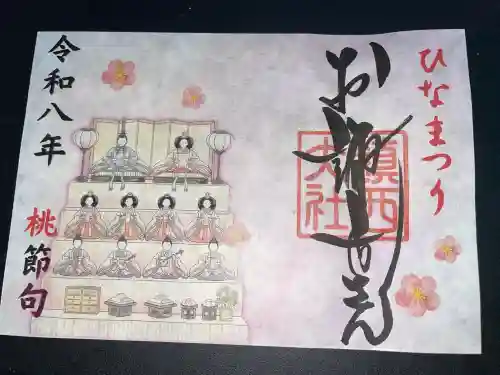 ひなまつり
お諏訪さん
鎮西
大社
令和八年
桃節句